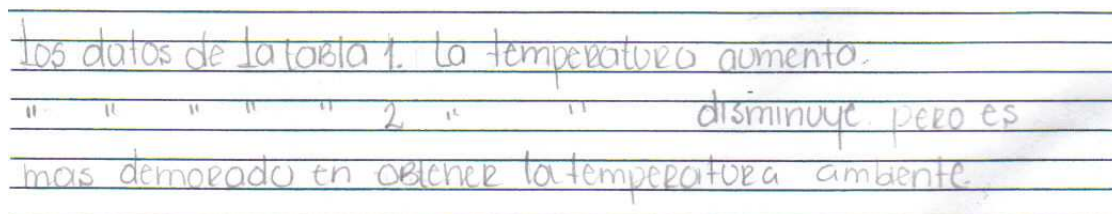 los datos de la tabla 1. La temperatura aumenta.
" " " " " 2 " " disminuye pero es
mas demorado en obtener la temperatura ambiente.